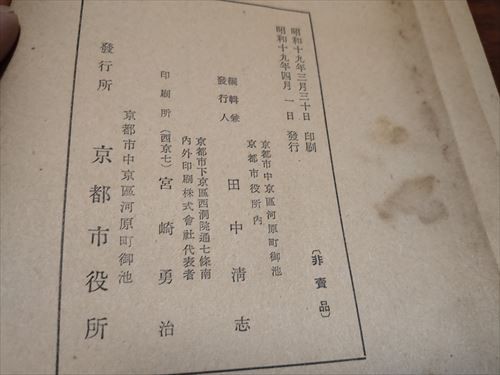 昭和十九年三月三十日 印刷
昭和十九年四月 一 日 發行
〔非賣品〕
京都市中京區河原町御池
京都市役所内
編輯兼
發行人 田中淸志
京都市下京區西洞院通七條南
内外印刷株式會社代表者
印刷所(西京七) 宮崎勇治
京都市中京區河原町御池
發行所 京都市役所